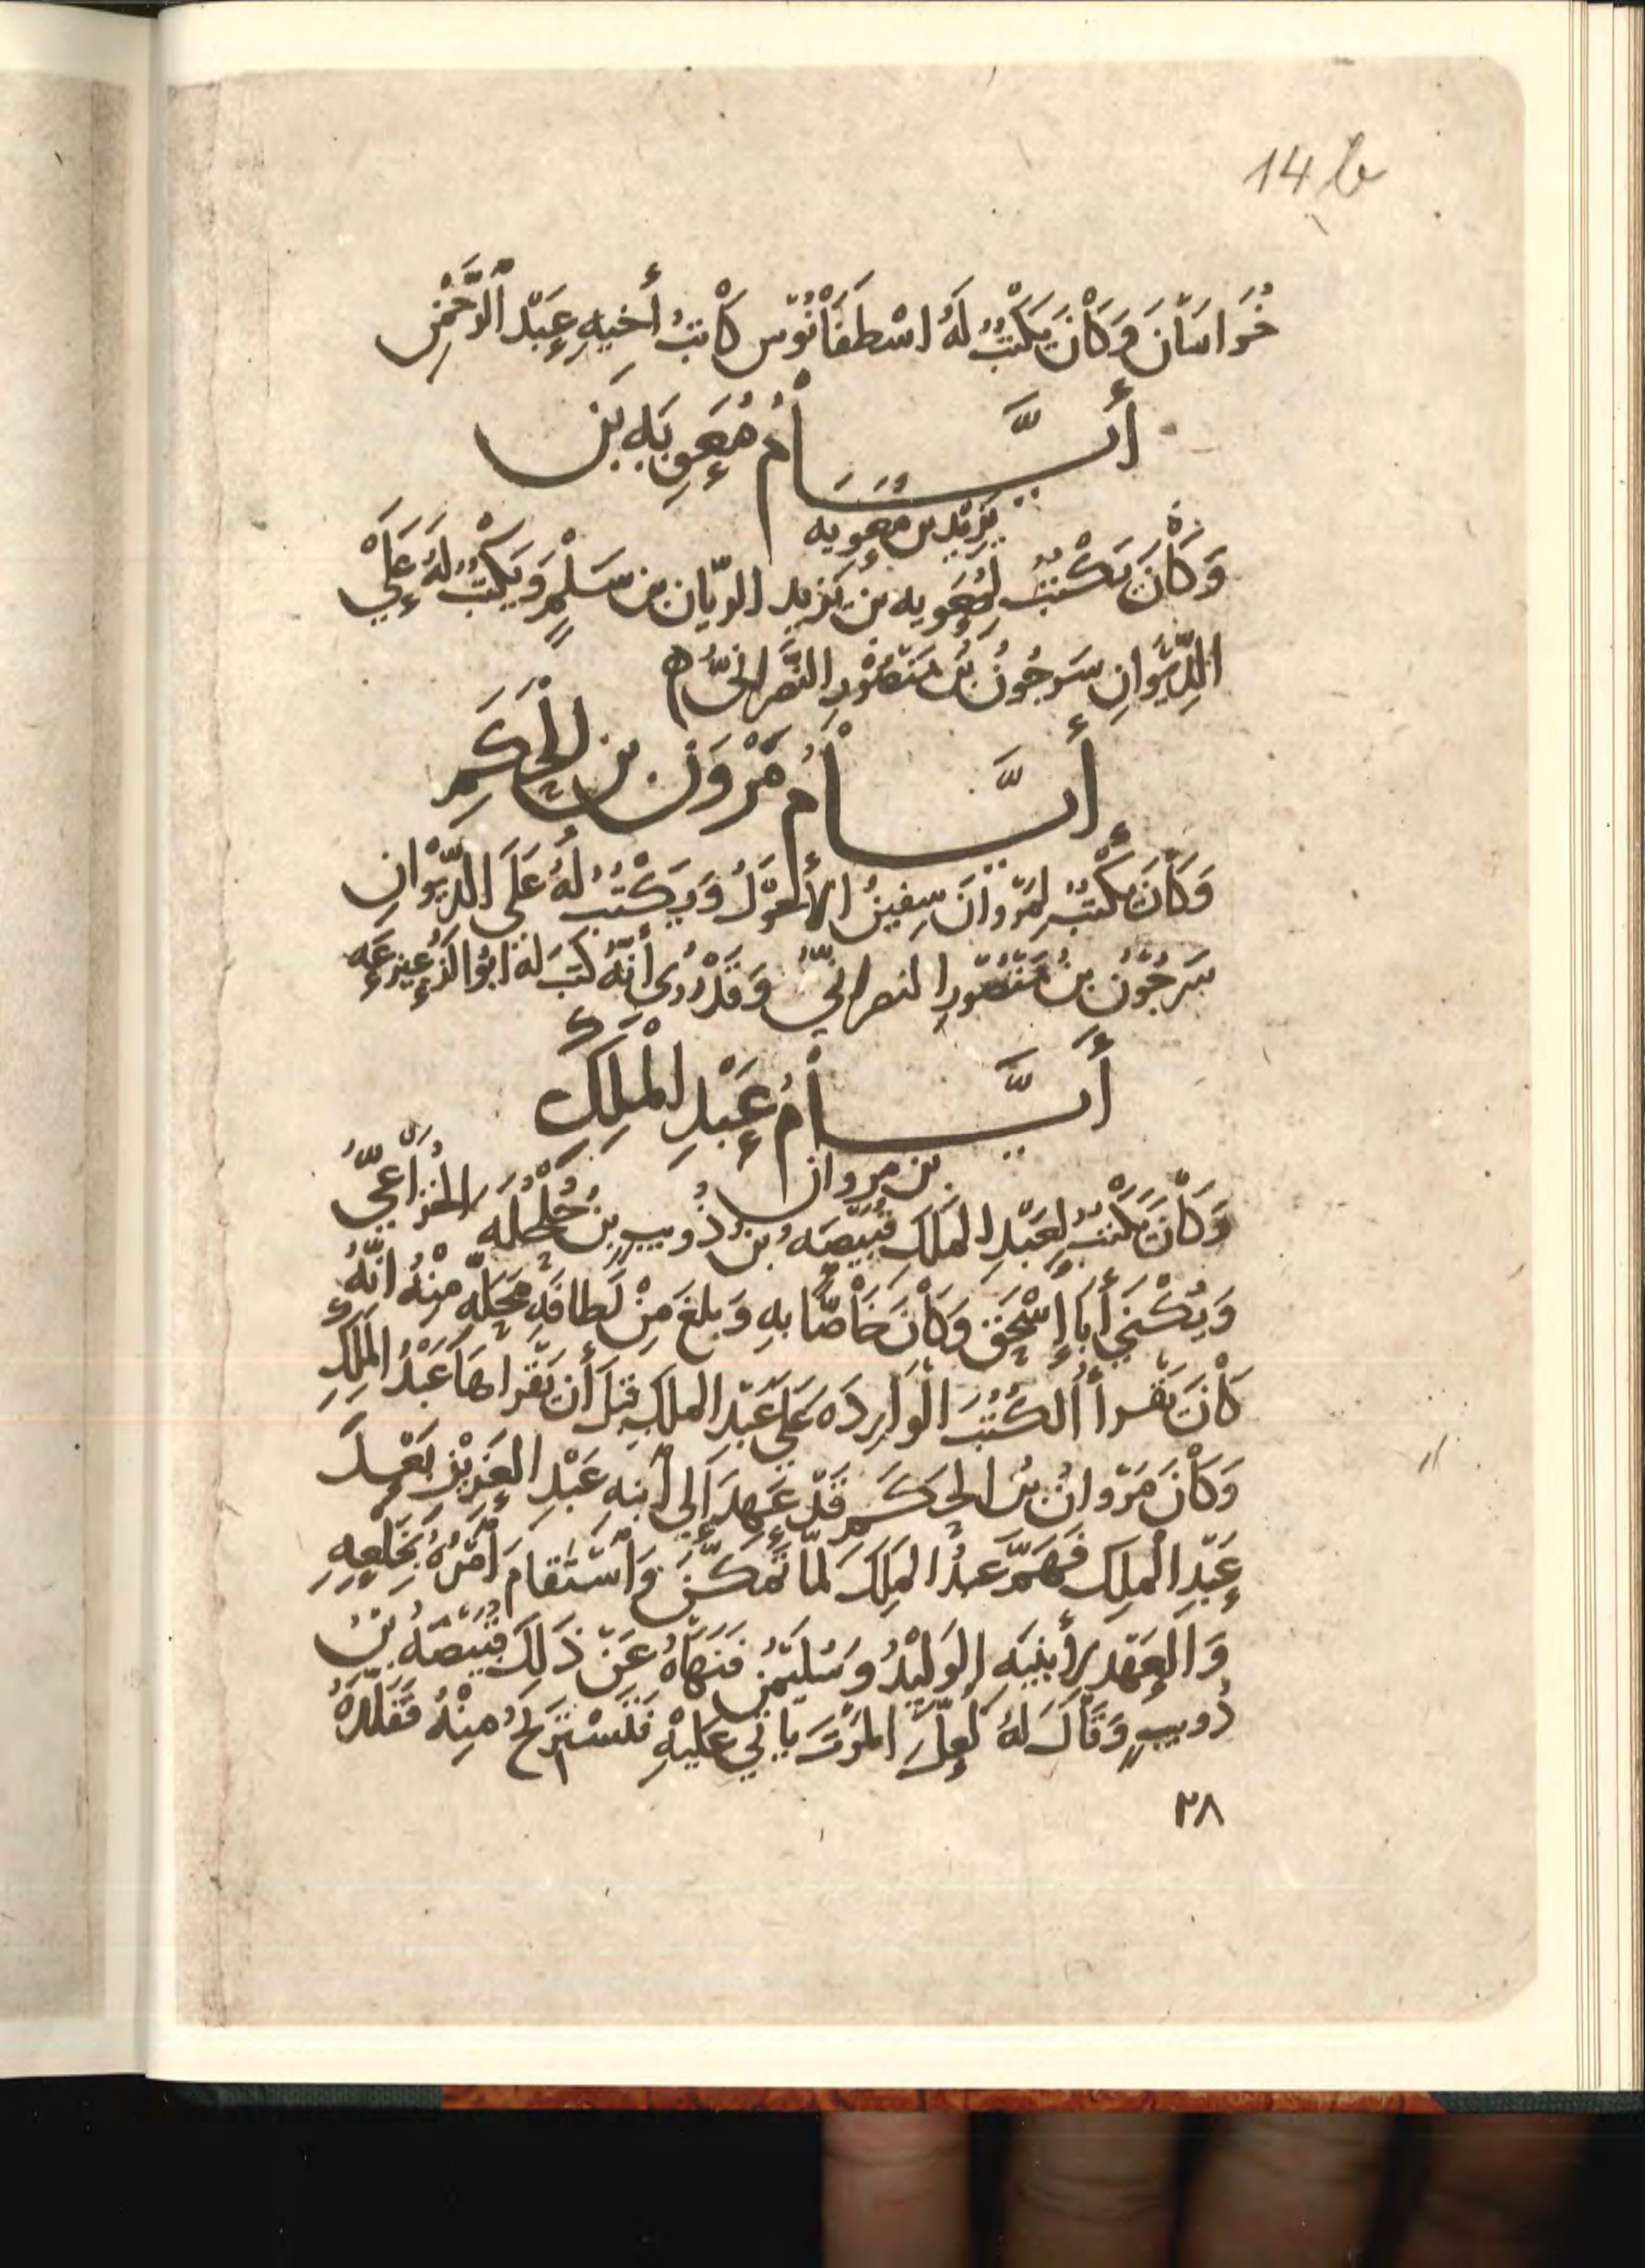 14 b
خُرَاسَانَ وَكَانَ يَكْتُبُ لَهُ اسْطَفَانُوْس كَاتِبُ أَخِيهِ عَبْدِ الرَّحْمٰنِ
أَيَّـــامُ مُعٰوِيَه بْنِ
يَزِيْد بن مُعٰوِيه
وَكَانَ يَكْتُبُ لِمُعٰوِيه بْن يَزِيد الريّان بن مُسْلِمٍ وَيَكْتُبُ لَهُ عَلَى
الدِّيْوَانِ سَرجُونُ بْنُ مَنْصُوْرِ النَّصْرَانِيُّ ه
أَيَّـــامُ مَرْوٰنَ بن الْحَكَمِ
وَكَانَ يَكْتُبُ لِمَرْوَانَ سُفْيٰنُ الأَحْوَلُ وَيَكْتُبُ لَهُ عَلَى الدِّيْوَانِ
سَرجُوْنُ بنُ مَنْصُوْرِ النصرانيُّ وَقَدْ رُوِى أَنَّهُ كَتَبَ لَهُ ابُو الزُّعَيزعَه
أَيَّـــامُ عَبْدِ الْمَلِكِ
بن مروان
وَكَانَ يَكْتُبُ لِعَبْدِ الملِكِ قُبَيْصَهُ بْنُ ذُويبٍ بن حُلْحُلَه الخُزَاعِيُّ
وَيُكْنٰى أَبَا إِسْحٰقَ وَكَانَ خَاصًّا بهِ وَبلغَ مِنْ لَطافَةِ مَحَلِّه مِنْهُ انَّهُ
كَانَ يَقْرأ الكُتُبَ الْوَارِدَه عَلَى عَبْدِ الملكِ قبلَ أَن يَقْراهَا عَبْدُ الملِكِ
وَكَانَ مَرْوانُ بنُ الحَكَمِ قَدْ عَهِدَ إِلى ابنِهِ عَبْدِ العَزِيْزِ بَعْدَ
عَبْدِ الْملِكِ فَهَمَّ عبدُ الملِكِ لمَّا تَمَكَّنَ وَاسْتَقامَ أَمْرُهُ بخَلعِهِ
وَالعَهْدِ لأبنَيه الوَلِيْدُ وسُلَيْمٰن فَنَهَاهُ عَنْ ذَلِكَ قُبَيْصَهُ بْنُ
ذُويبٍ وَقَالَ لهُ لَعَلَّ المَوْتَ يا تي عَلَيْهِ فَتَسْتَرِيْحَ مِنْهُ فَقَلَّدَهُ
٢٨